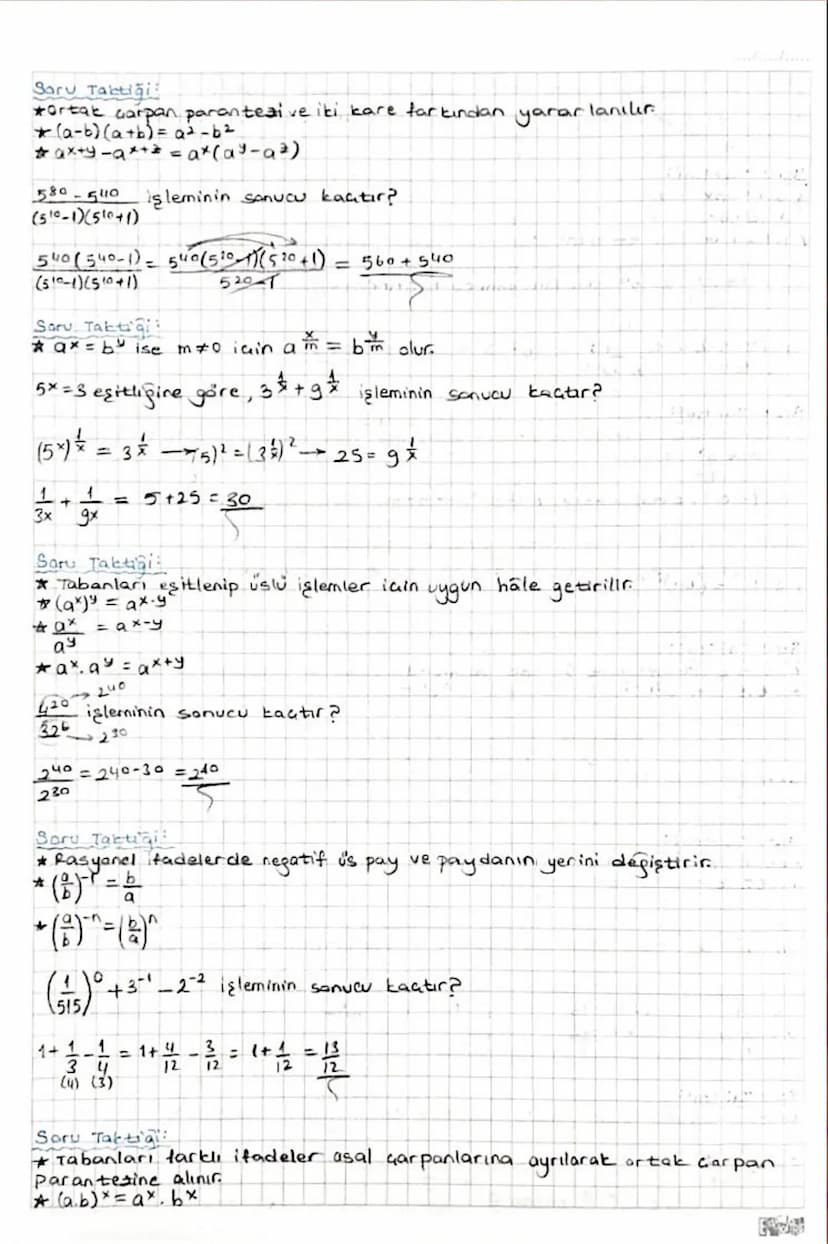 Soru Taktiği:
★Ortak çarpan parantezi ve iki kare farkından yararlanılır.
★(a-b)(a+b)=a²-b²
★a^(x+y)-a^(x+z)=a^x(a^y-a^z)
(5^80-5^40)/((5^10-1)(5^10+1)) işleminin sonucu kaçtır?
5^40(5^40-1)/((5^10-1)(5^10+1)) = 5^40(5^20-1)(5^20+1)/(5^20-1) = 5^60+5^40
Soru Taktiği:
★ a^x=b^y ise m≠0 için a^(x/m)=b^(y/m) olur.
5^x=3 eşitliğine göre, 3^(1/x)+9^(1/x) işleminin sonucu kaçtır?
(5^x)^(1/x) = 3^(1/x) → (5)²=(3^(1/x))² → 25=9^(1/x)
1/3x + 1/9x = 5+25=30
Soru Taktiği:
★ Tabanları eşitlenip üslü işlemler için uygun hâle getirilir.
★(a^x)^y=a^(x.y)
★ a^x/a^y = a^(x-y)
★a^x.a^y=a^(x+y)
4^20→2^40 / 32^6→2^30 işleminin sonucu kaçtır?
2^40/2^30 = 2^(40-30) = 2^10
Soru Taktiği:
★ Rasyonel ifadelerde negatif üs pay ve paydanın yerini değiştirir.
★(a/b)^-1=b/a
★(a/b)^-n=(b/a)^n
(1/515)^0+3^-1-2^-2 işleminin sonucu kaçtır?
1+1/3-1/4 = 1+4/12-3/12 = 1+1/12 = 13/12
(4) (3)
Soru Taktiği:
★ Tabanları farklı ifadeler asal çarpanlarına ayrılarak ortak çarpan
parantezine alınır.
★ (a.b)^x=a^x.b^x